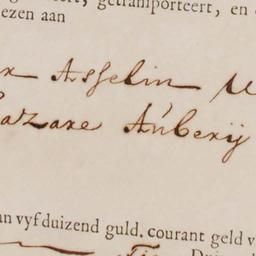 getransporteert, en
ezen aan
Asselin
Lazare Aubery
an vyfduizend guld. courant geld v